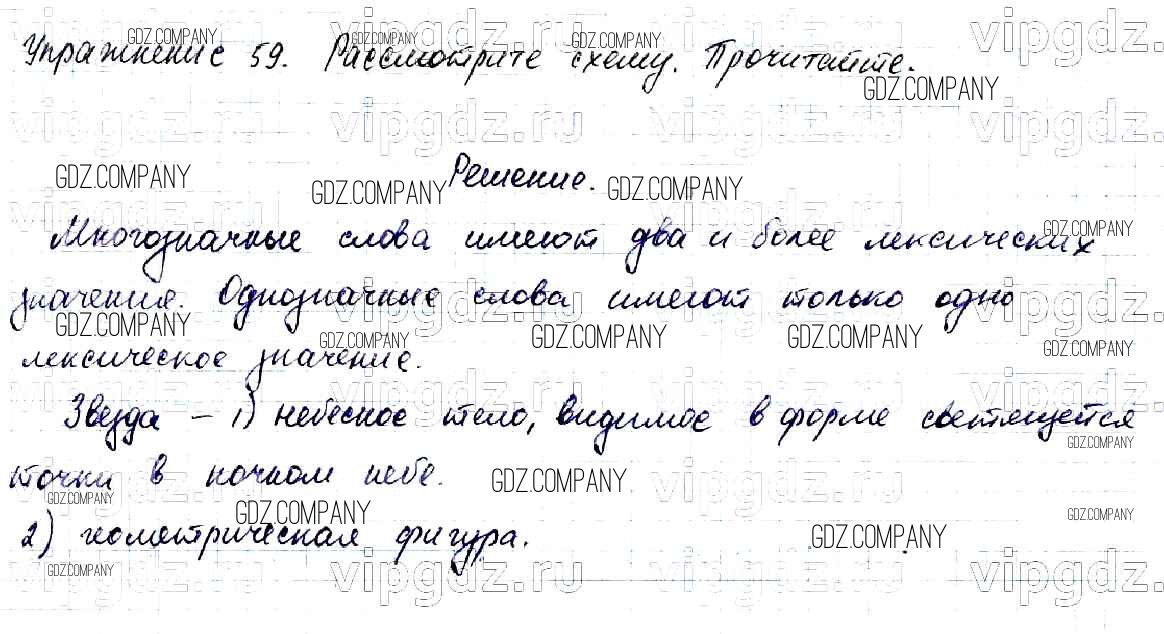 Упражнение 59. Рассмотрите схему. Прочитайте.
Решение.
Многозначные слова имеют два и более лексических
значения. Однозначные слова имеют только одно
лексическое значение.
Звезда – 1) небесное тело, видимое в форме светящейся
точки в ночном небе.
2) геометрическая фигура.